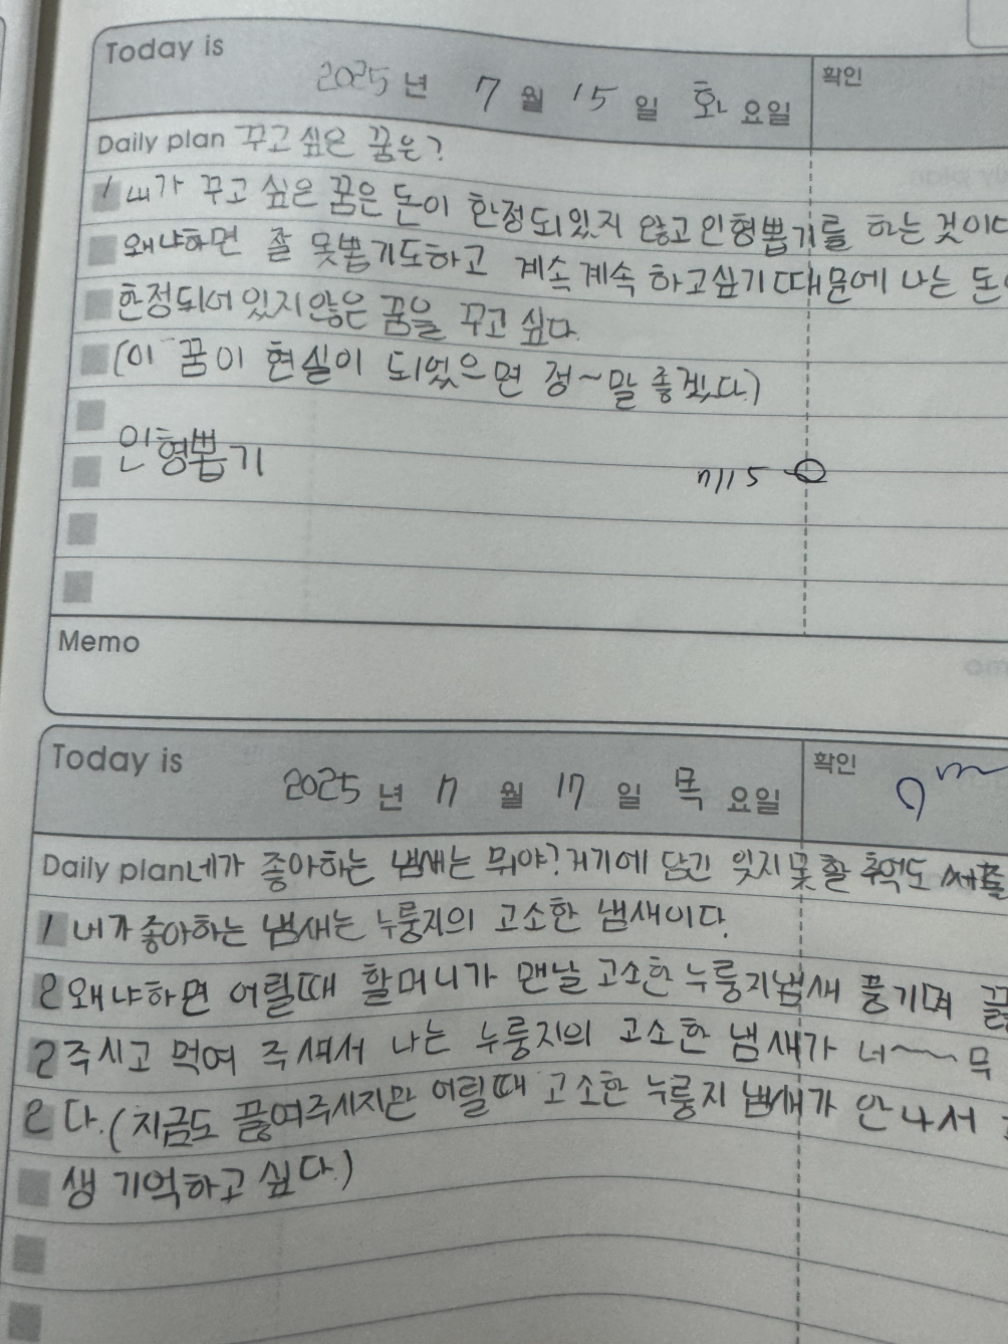 Today is
2025년 7월 15일 화요일 확인
Daily plan 꾸고 싶은 꿈은?
1 내가 꾸고 싶은 꿈은 돈이 한정되있지 않고 인형뽑기를 하는 것이다
왜냐하면 잘 못뽑기도하고 계속계속 하고싶기때문에 나는 돈이
한정되어있지않은 꿈을 꾸고 싶다.
(이 꿈이 현실이 되었으면 정~말 좋겠다.)
인형뽑기
Memo
Today is
2025년 7월 17일 목요일 확인
Daily plan 네가 좋아하는 냄새는 뭐야? 거기에 담긴 잊지못할 추억도
1 내가 좋아하는 냄새는 누룽지의 고소한 냄새이다.
2 왜냐하면 어릴때 할머니가 맨날 고소한 누룽지냄새 풍기며
2 주시고 먹여 주셔서 나는 누룽지의 고소한 냄새가 너~~
2 다.(지금도 끓여주시지만 어릴때 고소한 누룽지 냄새가 안 나서
생 기억하고 싶다.)